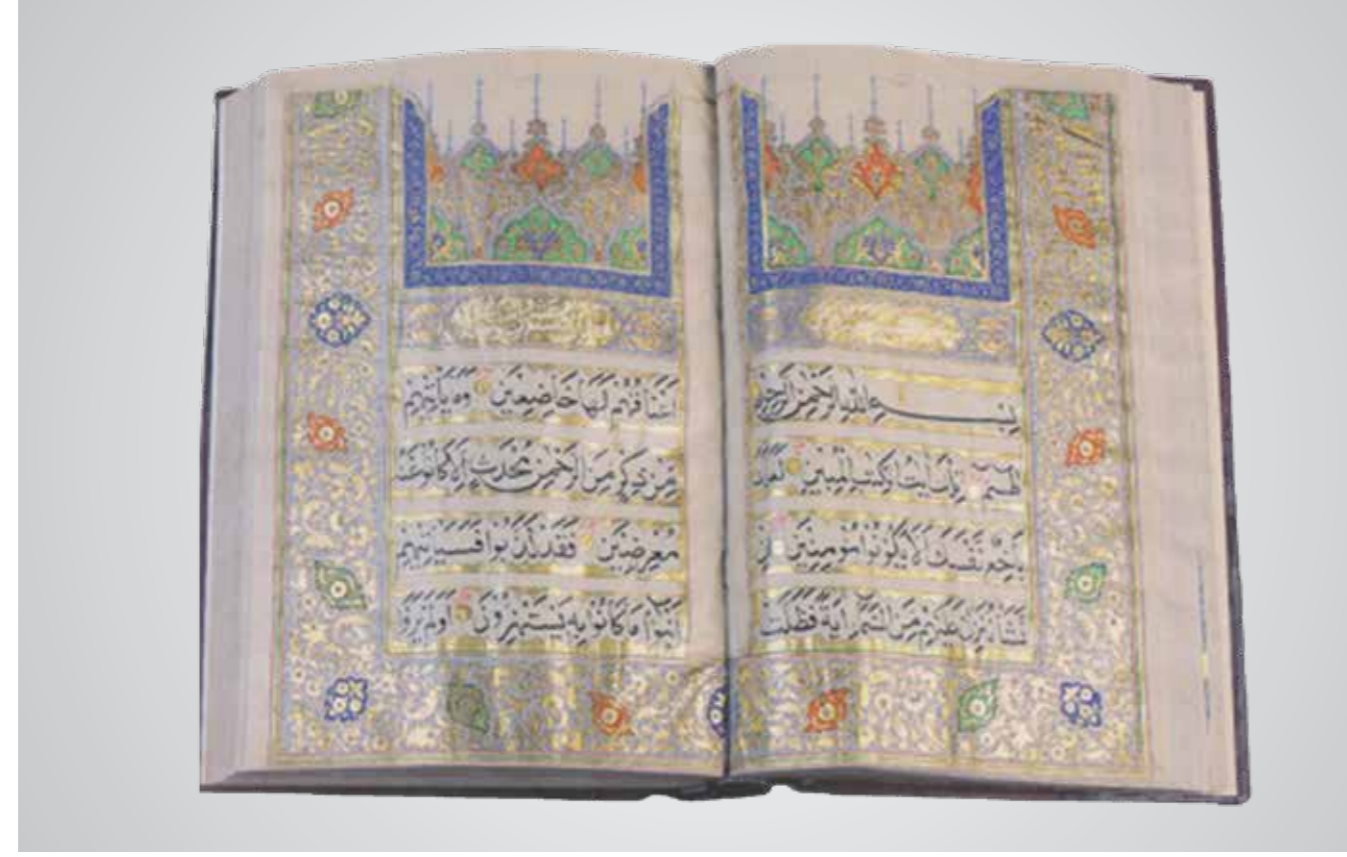 بِسْمِ اللهِ الرَّحْمٰنِ الرَّحِيْمِ
طٰسٓمّٓ تِلْكَ اٰيٰتُ الْكِتٰبِ الْمُبِيْنِ لَعَلَّكَ
بَاخِعٌ نَفْسَكَ اَلَّا يَكُوْنُوْا مُؤْمِنِيْنَ اِنْ
نَشَأْ نُنَزِّلْ عَلَيْهِمْ مِنَ السَّمَآءِ اٰيَةً فَظَلَّتْ
اَعْنَاقُهُمْ لَهَا خَاضِعِيْنَ وَمَا يَأْتِيْهِمْ
مِنْ ذِكْرٍ مِنَ الرَّحْمٰنِ مُحْدَثٍ اِلَّا كَانُوْا عَنْهُ
مُعْرِضِيْنَ فَقَدْ كَذَّبُوْا فَسَيَأْتِيْهِمْ
اَنْبٰٓؤُا مَا كَانُوْا بِهٖ يَسْتَهْزِؤُنَ اَوَلَمْ يَرَوْا